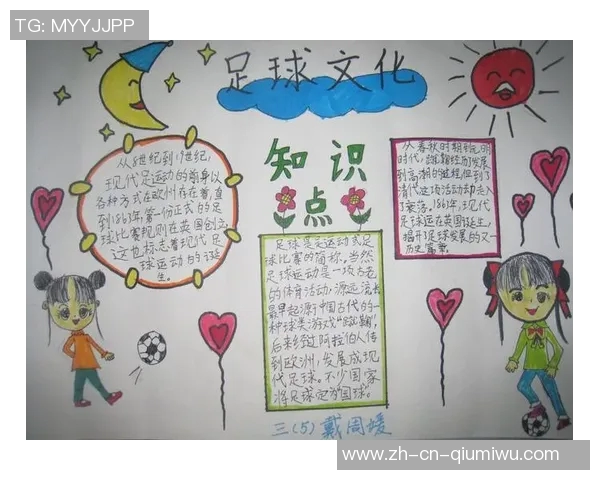 TG: MYYJJPP
足球文化
知识
点
从8世纪到19世纪，
现代足运动的前身以
各种方式在欧州存在着，直
到1863年，第一份正式的足
球比赛规则在英国创立
这也标志着现代足
球运动的诞
生。
从春秋时期到元明
时代，蹴鞠经历发展
到高潮的进程，但到了
清代这项活动却走入
了衰落。1863年，现代
足球运在英国诞生，
揭开了足球发展的又一
历史篇章
足球是足运动或足
球比赛的简称。当然
足球运动是一项古老
的体育活动，源远流长
最早起源于中国古代的一
种球类游戏“蹴鞠”，
后来经过阿拉伯人传
到欧洲，发展成现
代足球。不少国家
将足球定为“国球。
三(5)戴周媛
www.zh-cn-qiumiwu.com